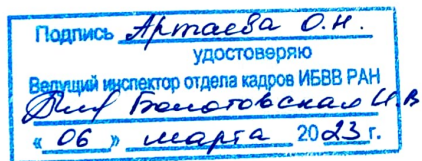 Подпись Артаева О.Н.
удостоверяю
Ведущий инспектор отдела кадров ИБВВ РАН
Болотовская И.В
«06» марта 2023 г.